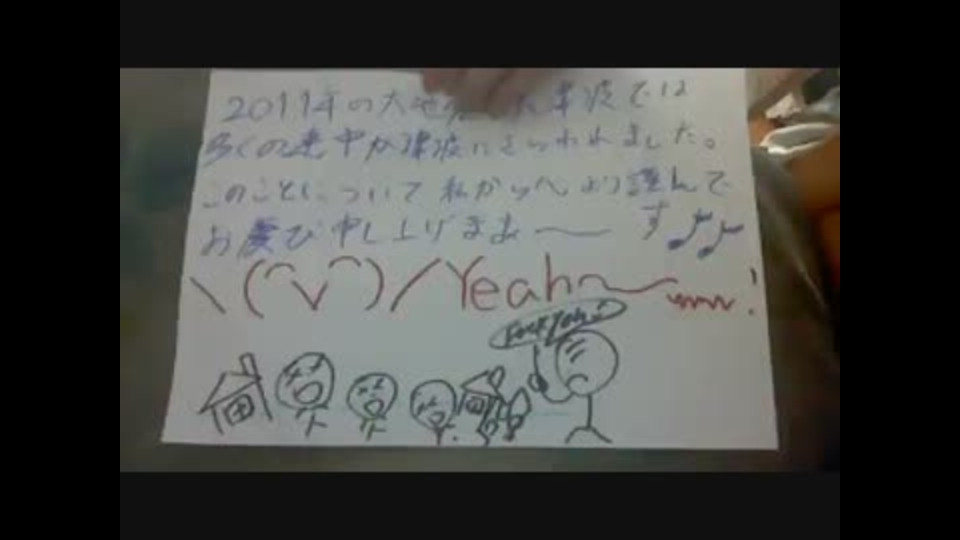 2011年の大地 津波では
多くの連中が津波にさらわれました。
このことについて私から心より謹んで
お慶び申し上げまあ〜す♪♪
\(^v^)/Yeah〜!